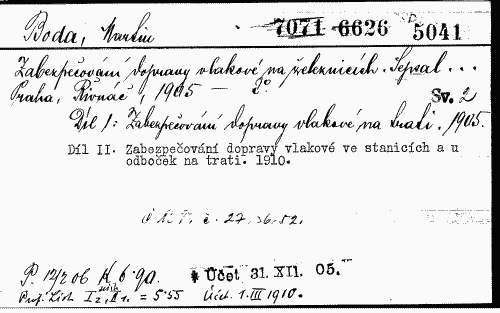 Boda, Martin 7071 6626 5041
Zabezpečování dopravy vlakové na železnicích. Sepsal ...
Praha, Řivnáč, 1905 — 8°. Sv. 2
Díl I: Zabezpečování dopravy vlakové na trati. 1905.
Díl II. Zabezpečování dopravy vlakové ve stanicích a u
odboček na trati. 1910.
č. 27.
P. 12/2 06 K 6·90. Účet 31. XII. 05.
= 5·55 Účt. 1. III 1910.